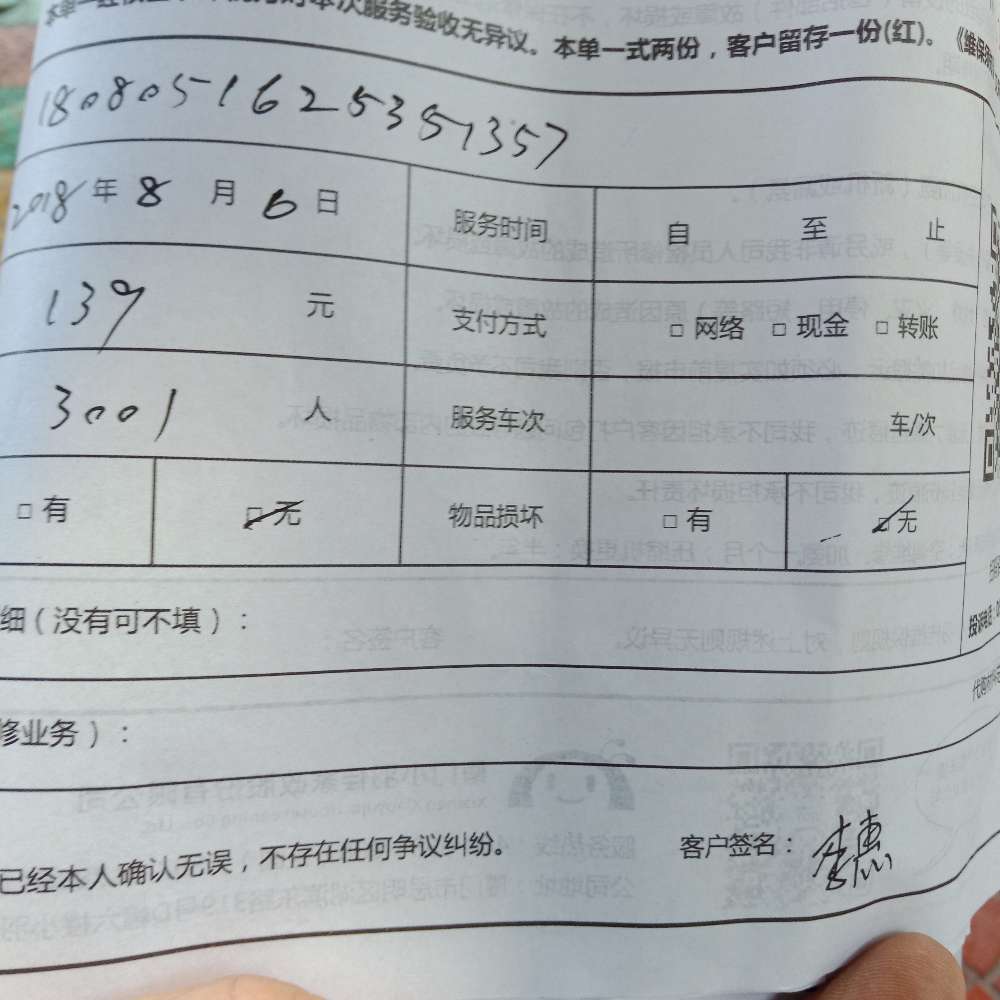 本次服务验收无异议。本单一式两份，客户留存一份(红)。《维保
1808051625351357
2018年8月6日 服务时间 自 至 止
139 元 支付方式 □ 网络 □ 现金 □ 转账
3001 人 服务车次 车/次
□ 有 □ 无 物品损坏 □ 有 □ 无
细（没有可不填）：
修业务）：
已经本人确认无误，不存在任何争议纠纷。 客户签名：李惠